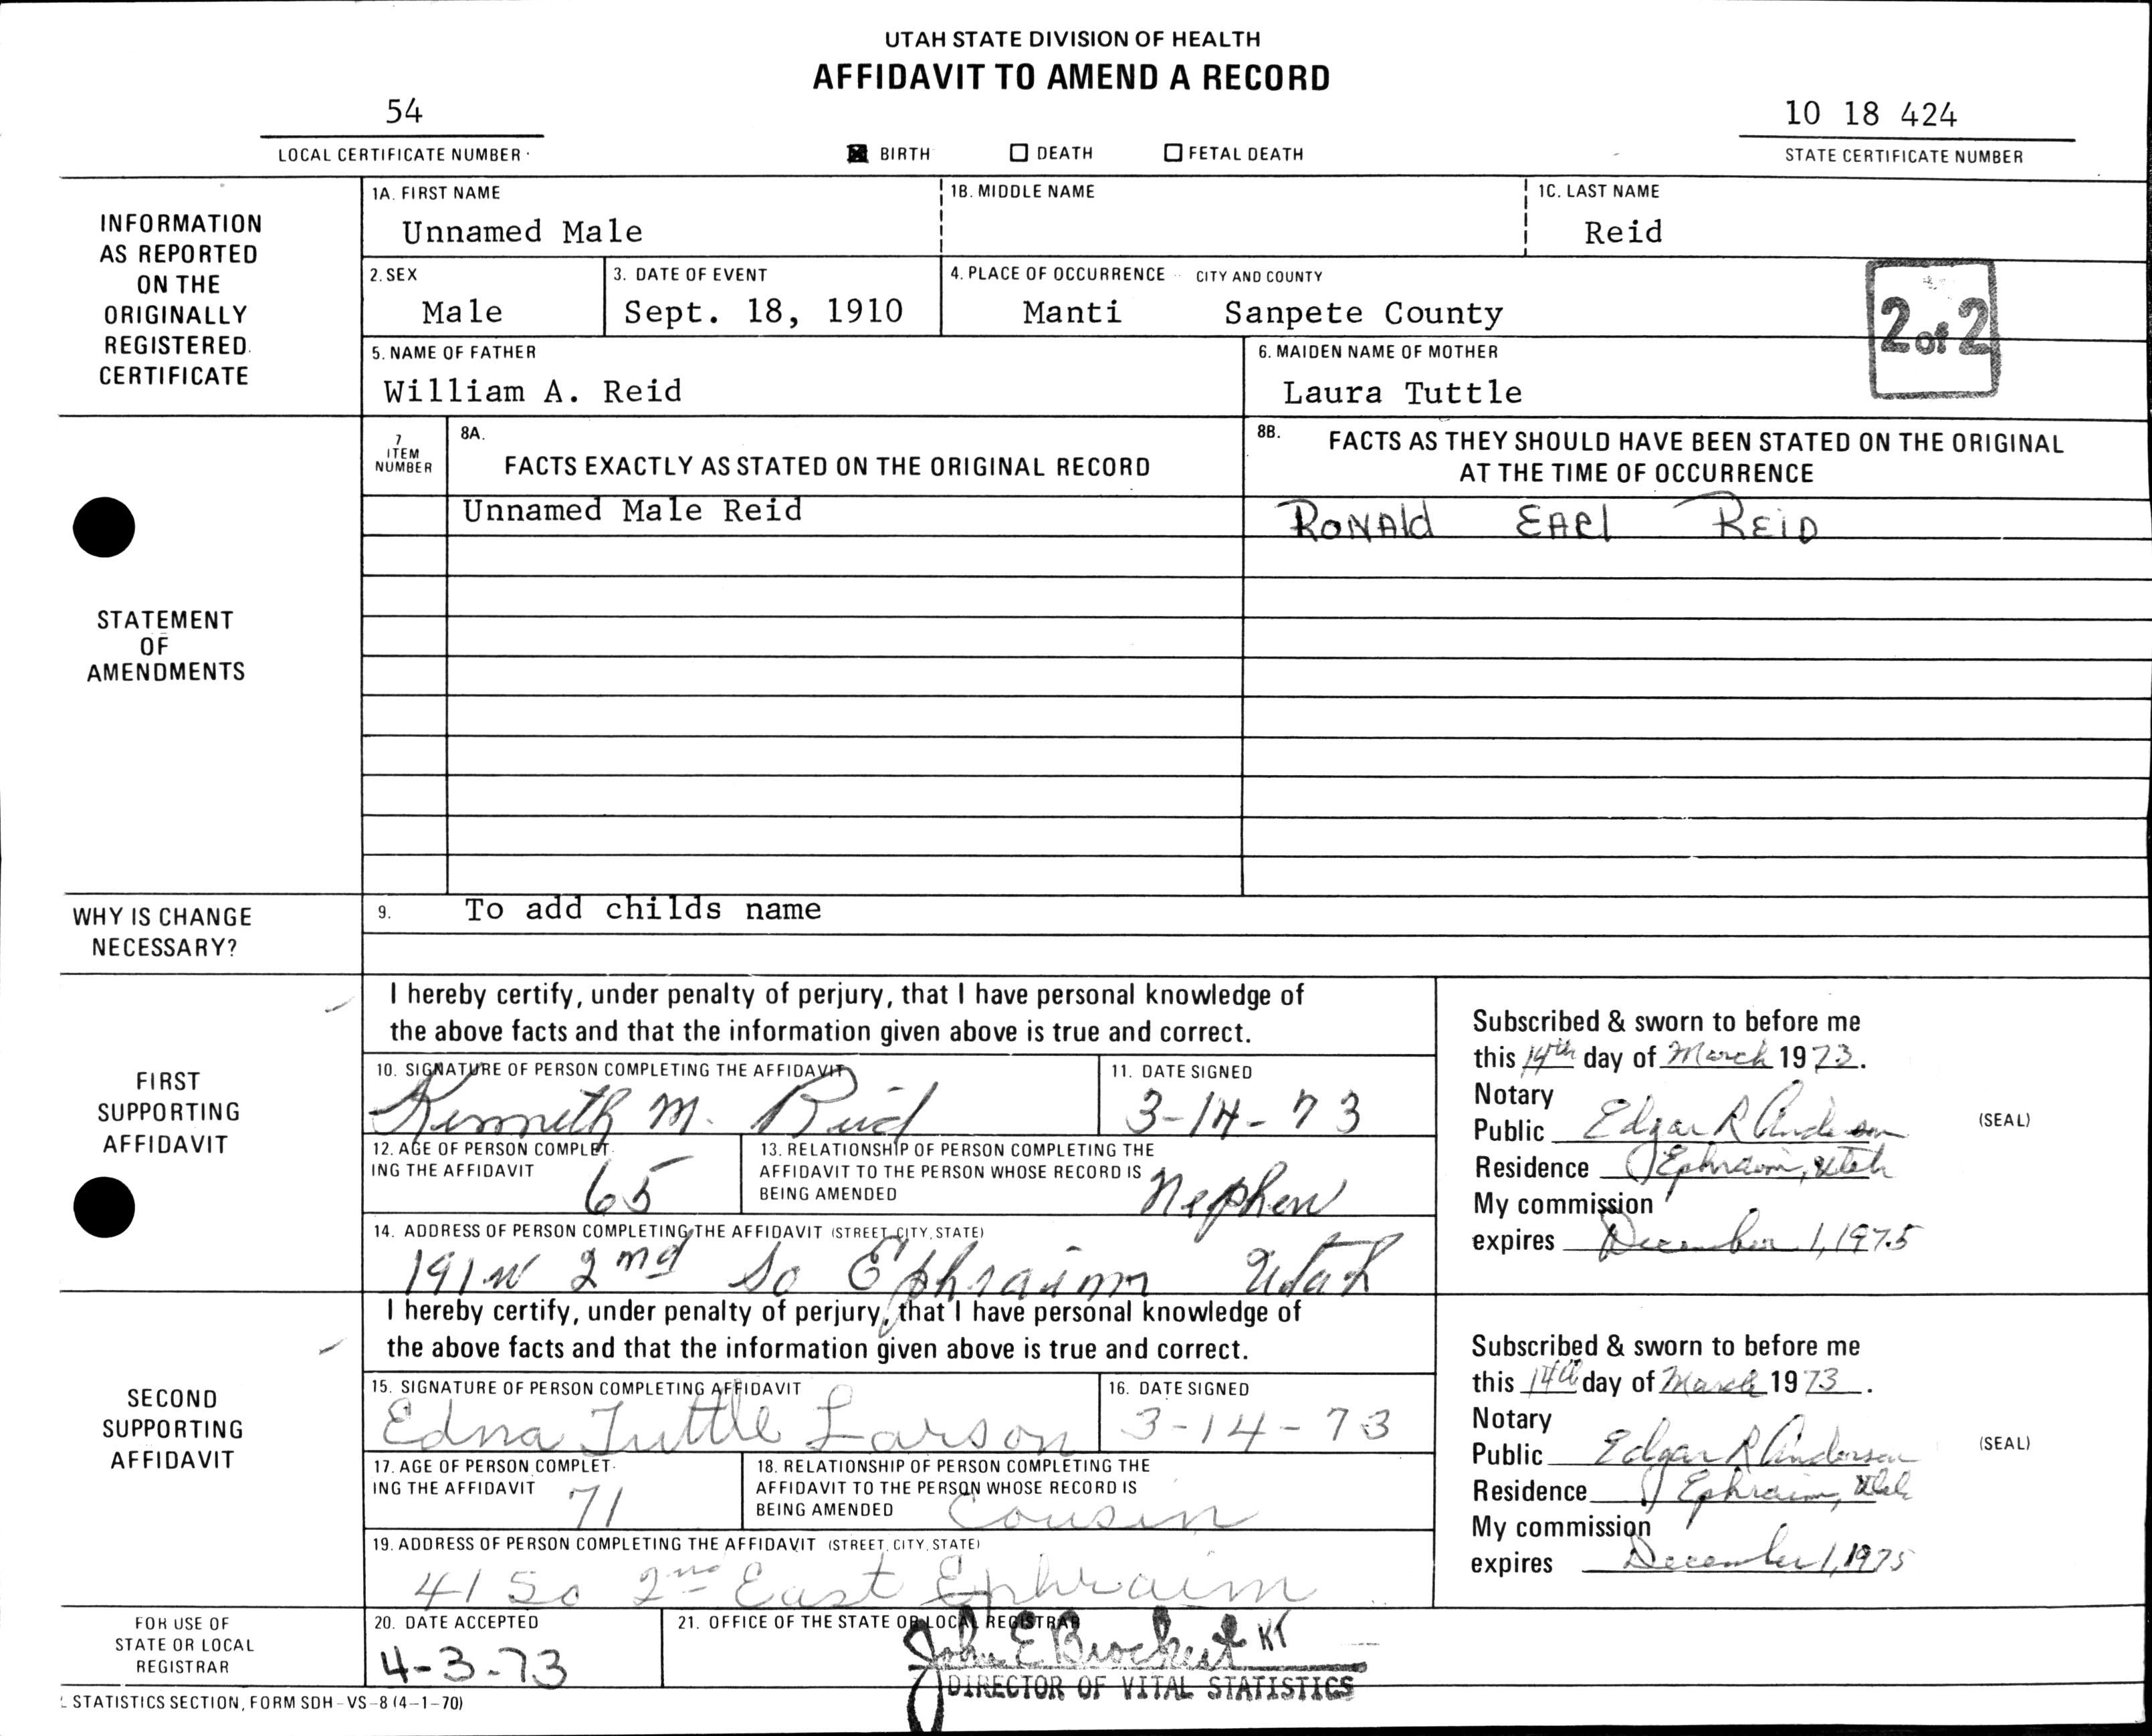 UTAH STATE DIVISION OF HEALTH
AFFIDAVIT TO AMEND A RECORD
54
10 18 424
LOCAL CERTIFICATE NUMBER
BIRTH DEATH FETAL DEATH
STATE CERTIFICATE NUMBER
INFORMATION
AS REPORTED
ON THE
ORIGINALLY
REGISTERED
CERTIFICATE
1A. FIRST NAME 1B. MIDDLE NAME 1C. LAST NAME
Unnamed Male Reid
2. SEX 3. DATE OF EVENT 4. PLACE OF OCCURRENCE CITY AND COUNTY
Male Sept. 18, 1910 Manti Sanpete County
2 of 2
5. NAME OF FATHER 6. MAIDEN NAME OF MOTHER
William A. Reid Laura Tuttle
STATEMENT
OF
AMENDMENTS
7
ITEM
NUMBER
8A.
FACTS EXACTLY AS STATED ON THE ORIGINAL RECORD
8B. FACTS AS THEY SHOULD HAVE BEEN STATED ON THE ORIGINAL
AT THE TIME OF OCCURRENCE
Unnamed Male Reid RONAld EARl REID
WHY IS CHANGE
NECESSARY?
9. To add childs name
FIRST
SUPPORTING
AFFIDAVIT
I hereby certify, under penalty of perjury, that I have personal knowledge of
the above facts and that the information given above is true and correct.
10. SIGNATURE OF PERSON COMPLETING THE AFFIDAVIT 11. DATE SIGNED
Kenneth M. Reid 3-14-73
12. AGE OF PERSON COMPLET-
ING THE AFFIDAVIT
65
13. RELATIONSHIP OF PERSON COMPLETING THE
AFFIDAVIT TO THE PERSON WHOSE RECORD IS
BEING AMENDED
Nephew
14. ADDRESS OF PERSON COMPLETING THE AFFIDAVIT (STREET, CITY, STATE)
191 W 2nd So Ephraim Utah
Subscribed & sworn to before me
this 14th day of March 1973.
Notary
Public Edgar R Anderson
(SEAL)
Residence Ephraim, Utah
My commission
expires December 1, 1975
SECOND
SUPPORTING
AFFIDAVIT
I hereby certify, under penalty of perjury, that I have personal knowledge of
the above facts and that the information given above is true and correct.
15. SIGNATURE OF PERSON COMPLETING AFFIDAVIT 16. DATE SIGNED
Edna Tuttle Larson 3-14-73
17. AGE OF PERSON COMPLET-
ING THE AFFIDAVIT
71
18. RELATIONSHIP OF PERSON COMPLETING THE
AFFIDAVIT TO THE PERSON WHOSE RECORD IS
BEING AMENDED
Cousin
19. ADDRESS OF PERSON COMPLETING THE AFFIDAVIT (STREET, CITY, STATE)
41 So 2nd East Ephraim
Subscribed & sworn to before me
this 14th day of March 1973.
Notary
Public Edgar R Anderson
(SEAL)
Residence Ephraim, Utah
My commission
expires December 1, 1975
FOR USE OF
STATE OR LOCAL
REGISTRAR
20. DATE ACCEPTED 21. OFFICE OF THE STATE OR LOCAL REGISTRAR
4-3-73 John E Brockert KT
DIRECTOR OF VITAL STATISTICS
L STATISTICS SECTION, FORM SDH-VS-8 (4-1-70)